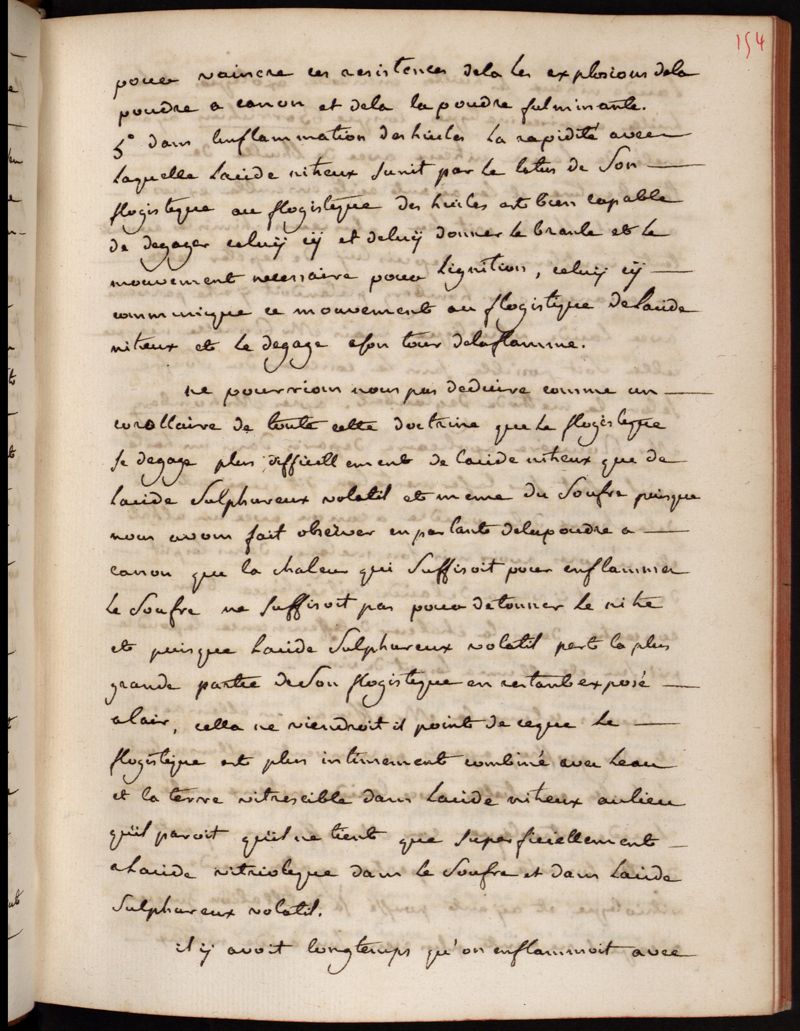 154
pour vaincre ces resistences dela les explosions dela
poudre a canon et dela la poudre fulminante.
5° dans linflammation des huiles la rapidité avec
laquelle lacide nitreux sunit par le letus de son
flogistique au flogistique des huiles est bien capable
de degager celuij cij et deluij donner le branle et le
mouvement necessaire pour lignition, celuij cij
communique ce mouvement au flogistique delacide
nitreux et le degage a son tour delaflamme.
ne pourrions nous pas deduire comme un
corollaire de toute cette doctrine que le flogistique
se degage plus difficillement de lacide nitreux que de
lacide sulphureux volatil et meme du soufre puisque
nous avons fait observer en parlant delapoudre a
canon que la chaleur qui suffisoit pour enflammer
le soufre ne suffisoit pas pour detonner le nitre
et puisque lacide sulphureux volatil perd la plus
grande partie de son flogistique en restant exposé
alair, cella ne viendroit il point de ceque le
flogistique est plus intimement combiné avec leau
et la terre vitrescible dans lacide nitreux aulieu
quil paroit quil ne tient que superficiellement
alacide vitriolique dans le soufre et dans lacide
sulphureux volatil.
il ij avoit longtemps qu'on enflammoit avec